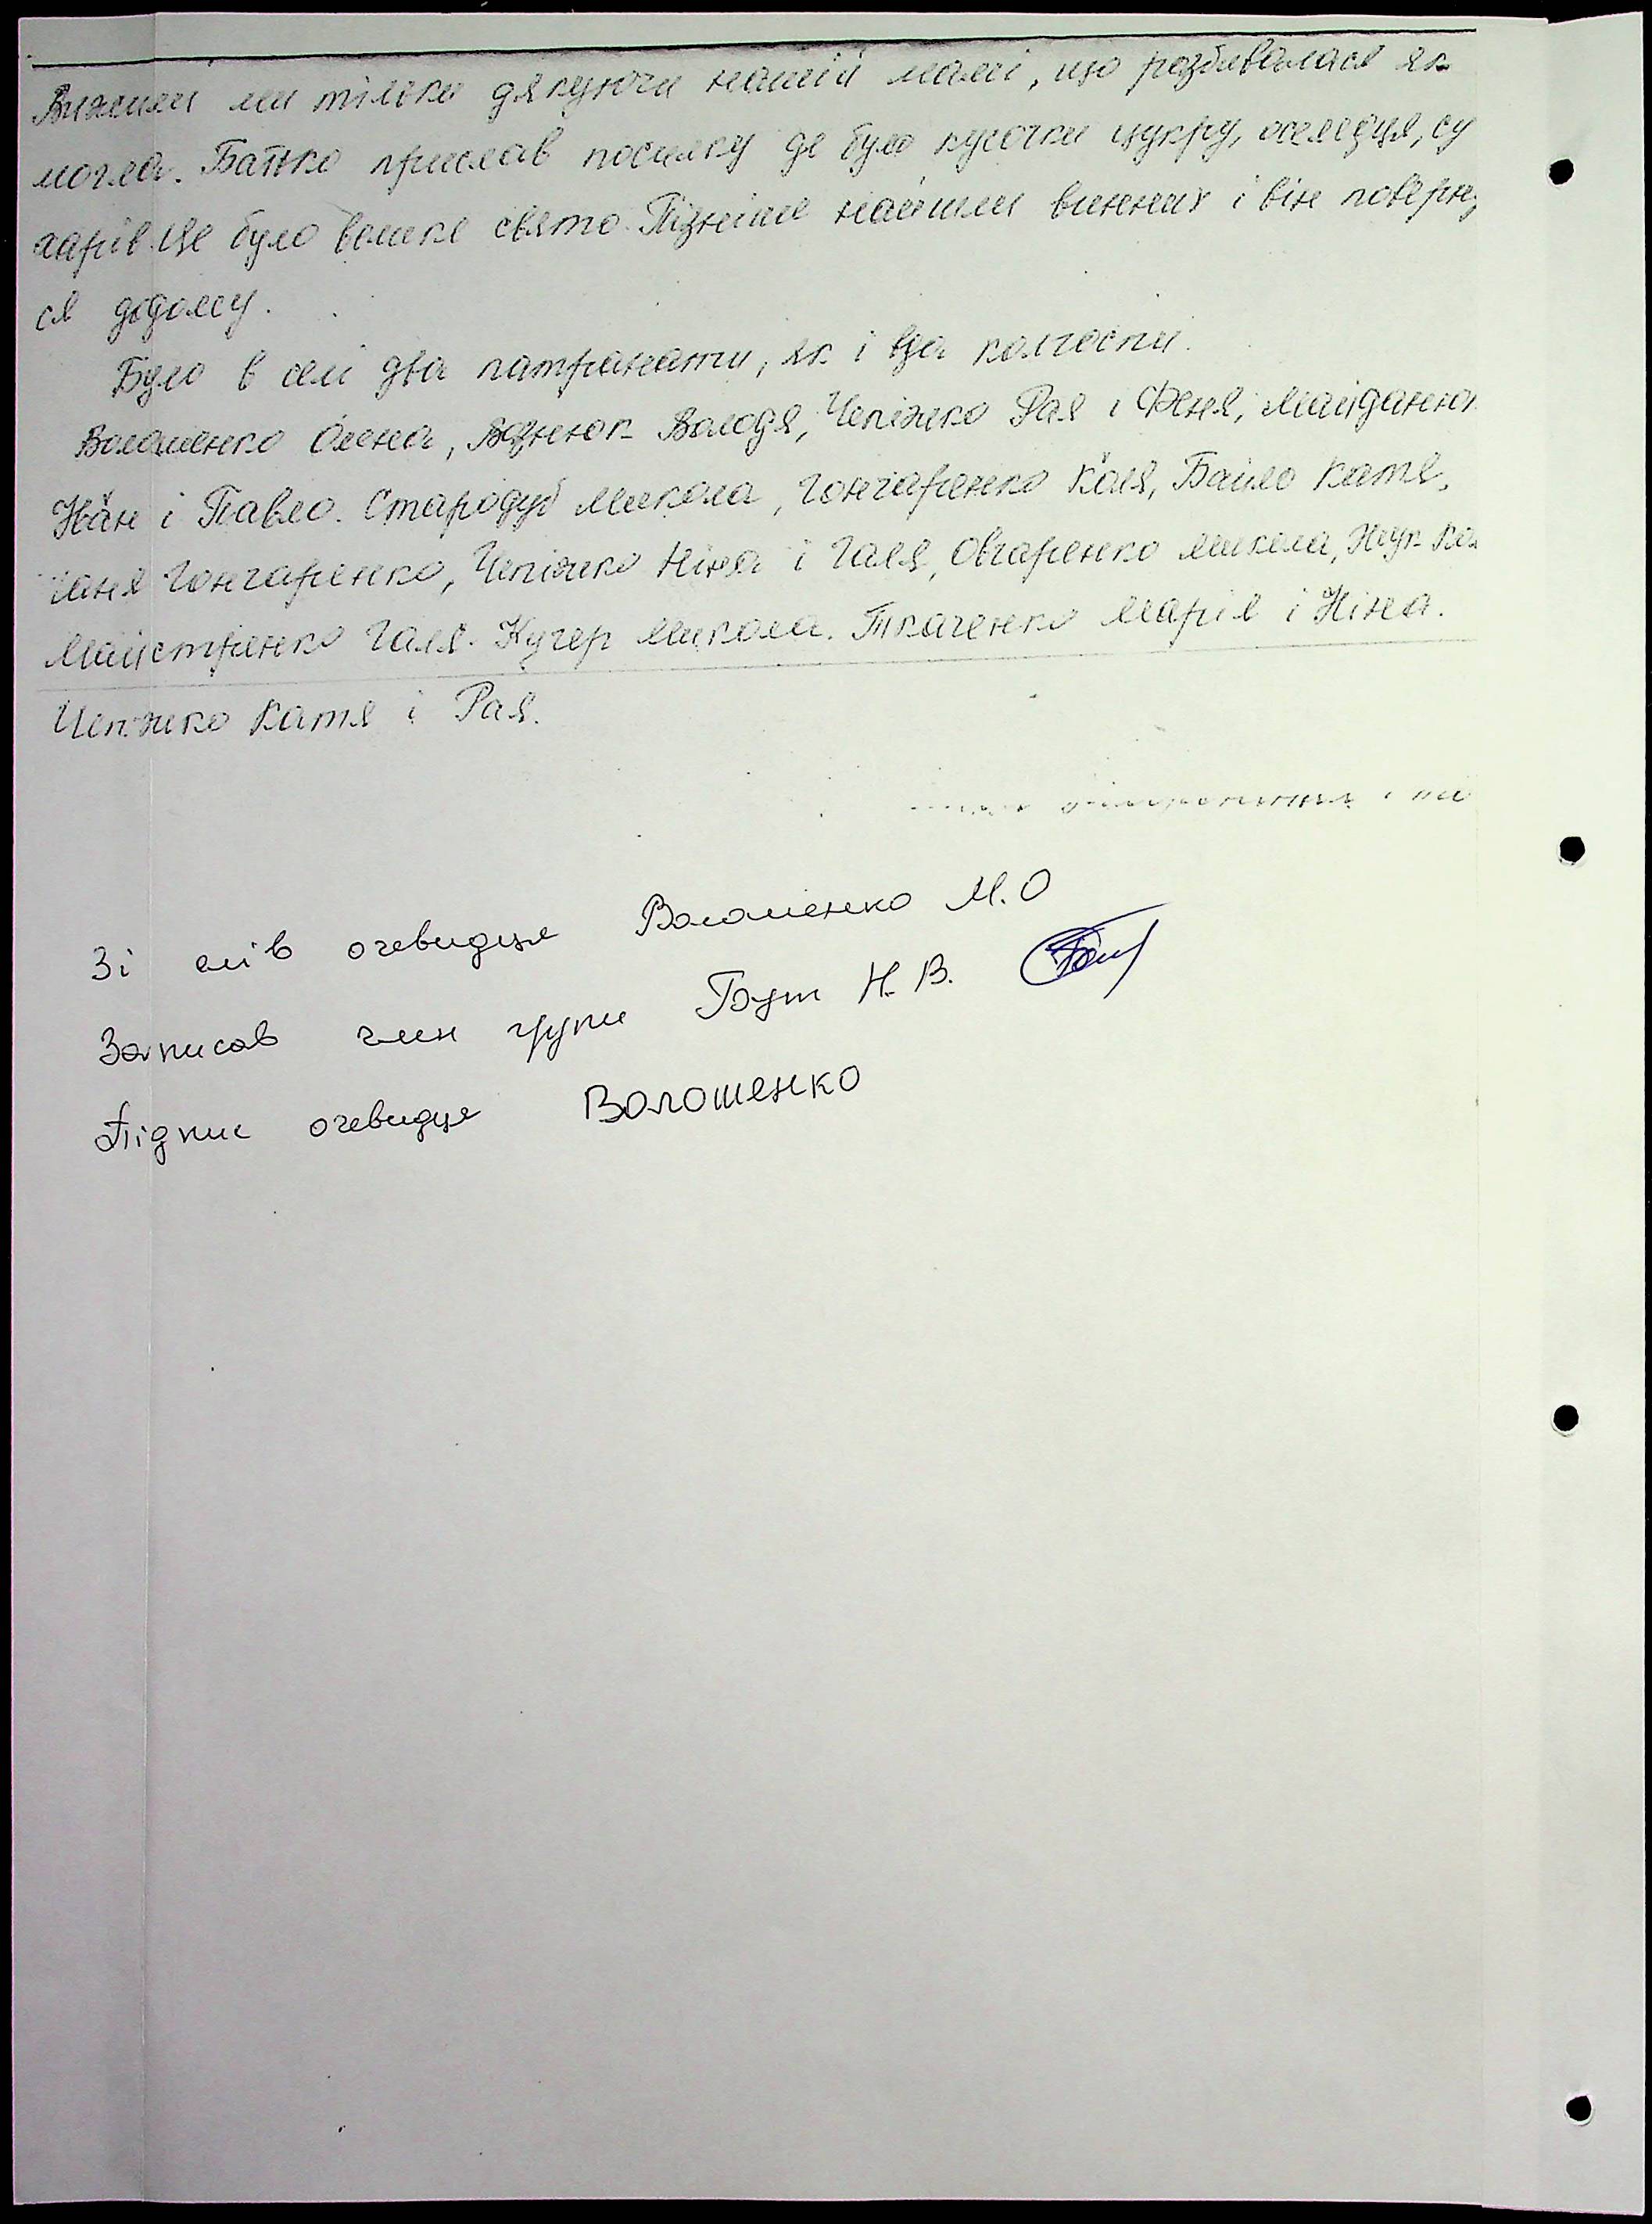 Вижили ми тільки дякуючи нашій мамі, що розбивалася як
могла. Батько прислав посилку де було кусочки цукру, оселедця, су
харів. Це було велике свято. Пізніше найшли винних і він поверну
ся додому.
Було в селі два патранати, як і два колгоспи.
Волошенко Олена, Вознюк Володя, Чепіжко Рая і Феня, Майданюк
Іван і Павло. Стародуб Микола, Гончаренко Коля, Байло Катя,
Ганя Гончаренко, Чепіжко Ніна і Галя, Овчаренко Микола,
Майстренко Галя. Кучер Микола. Ткаченко Марія і Ніна.
Чепіжко Катя і Рая.
Зі слів очевидця Волошенко М.О
Записав член групи Бут Н.В.
Підпис очевидця Волошенко